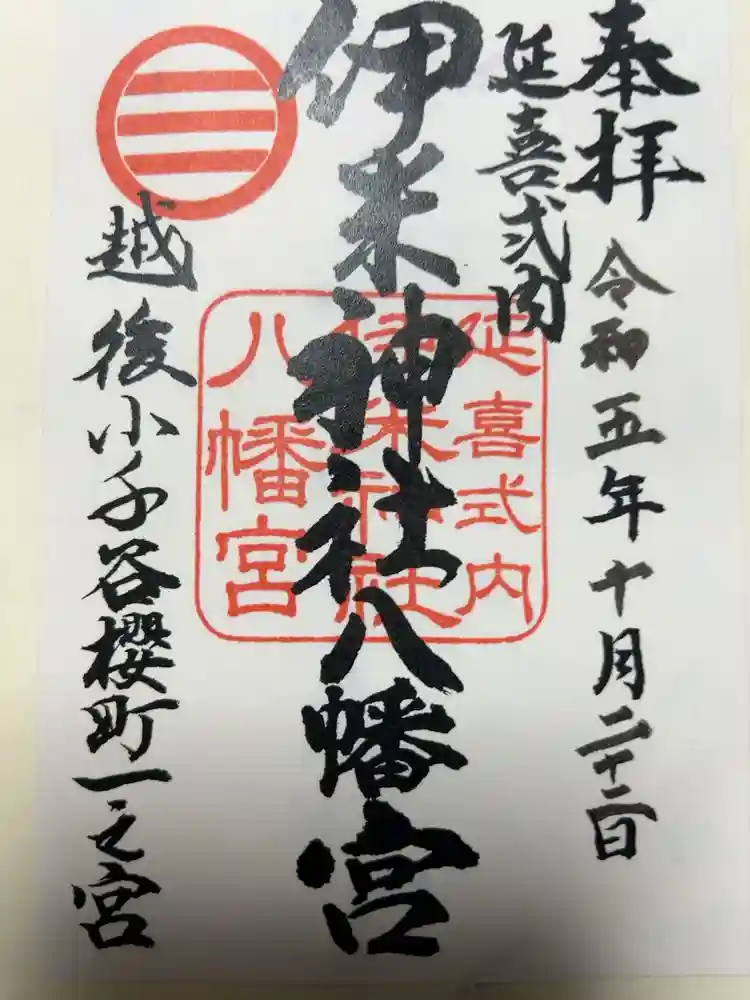 奉拝
令和五年十月二十二日
延喜式内
伊米神社八幡宮
延喜式内
伊米神社
八幡宮
越後小千谷櫻町一之宮